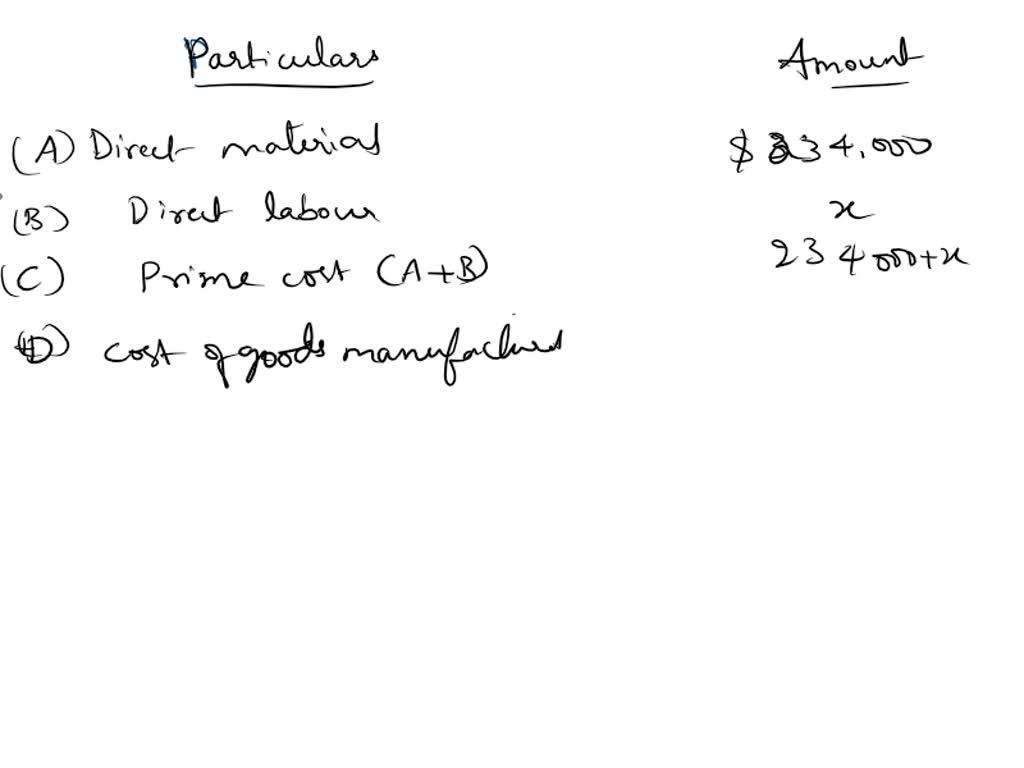 Particulars Amount
(A) Direct material $ 234,000
(B) Direct labour x
(C) Prime cost (A+B) 234000+x
(D) cost of goods manufactured